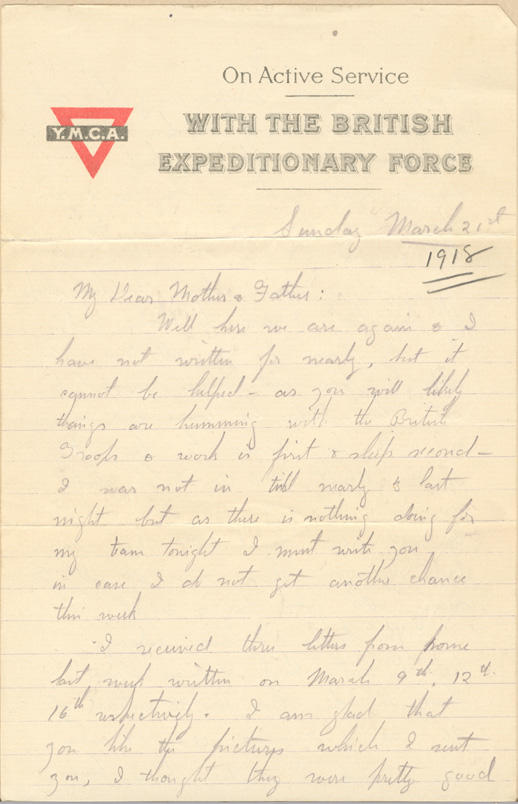 On Active Service
Y.M.C.A.
WITH THE BRITISH
EXPEDITIONARY FORCE
Sunday March 21st
1918
My Dear Mother & Father:
Well here we are again & I
have not written for nearly, but it
cannot be helped – as you will likely
things are humming with the British
Troops & work is first & sleep second –
I was not in till nearly 3 last
night but as there is nothing doing for
my team tonight I must write you
in case I do not get another chance
this week
I received three letters from home
last week written on March 9th, 12th,
16th respectively. I am glad that
you like the pictures which I sent
you, I thought they were pretty good